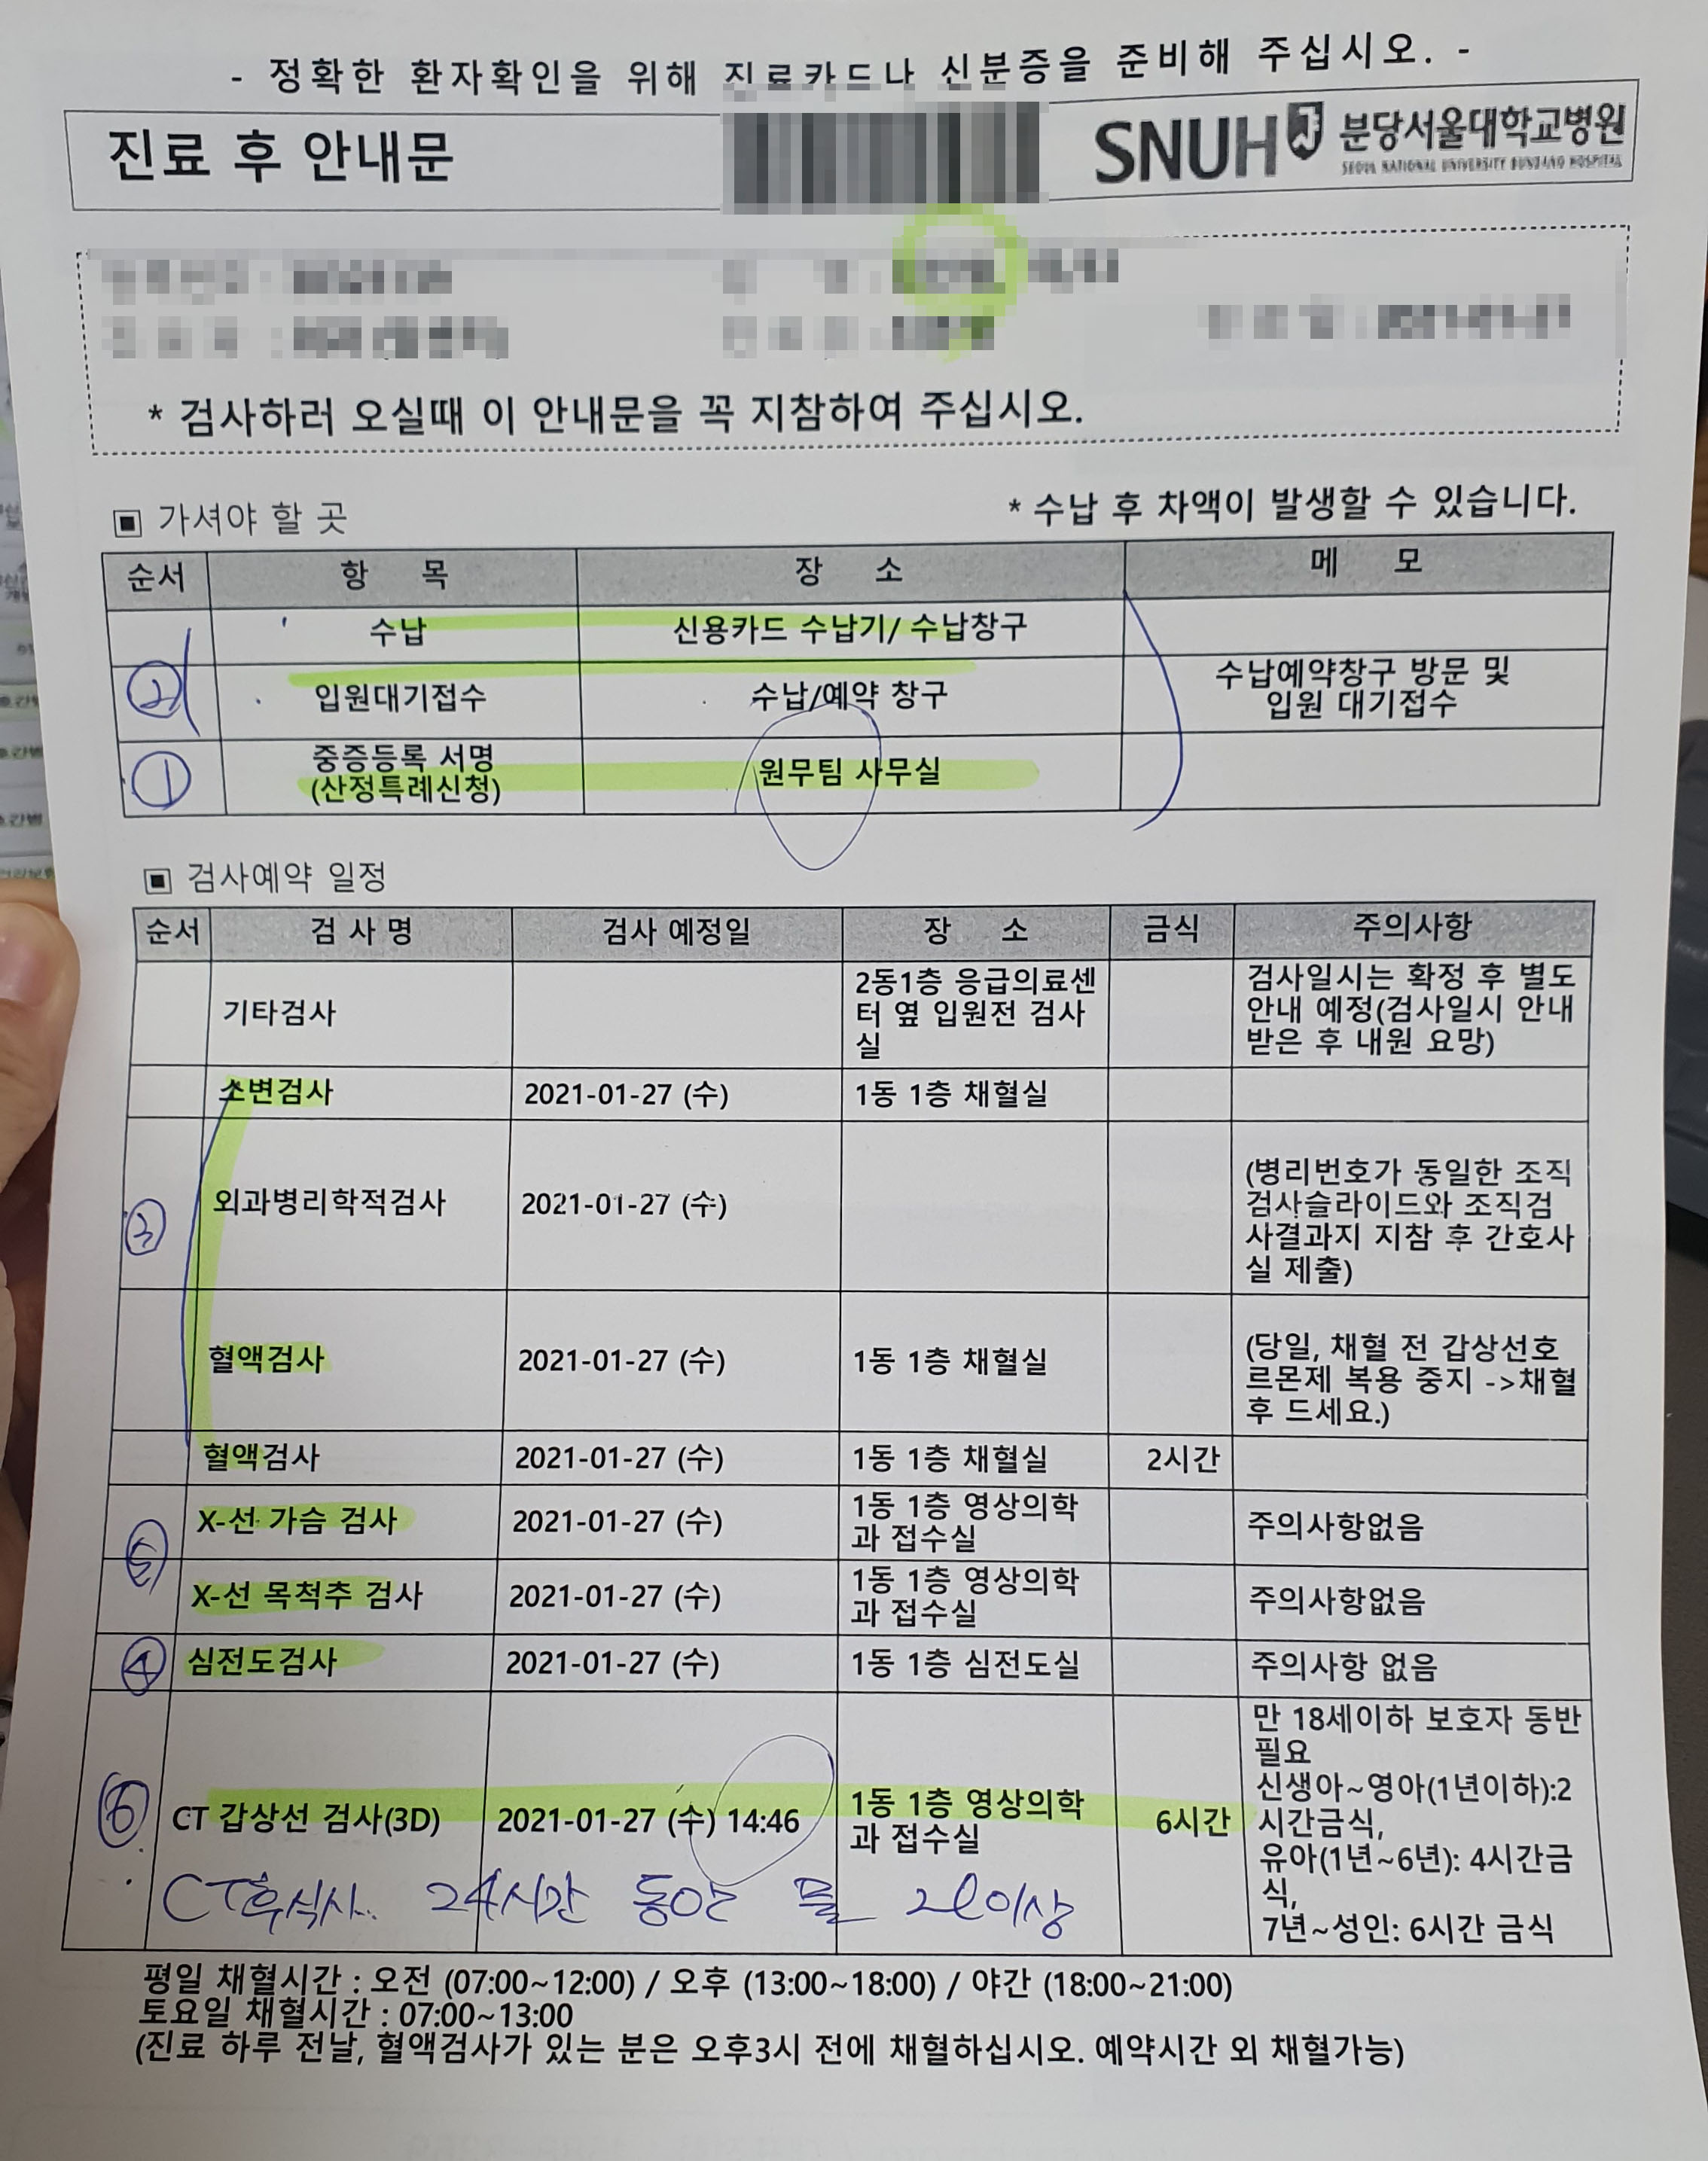 - 정확한 환자확인을 위해 진료카드나 신분증을 준비해 주십시오. -
진료 후 안내문
SNUH 분당서울대학교병원
SEOUL NATIONAL UNIVERSITY BUNDANG HOSPITAL
* 검사하러 오실때 이 안내문을 꼭 지참하여 주십시오.
▣ 가셔야 할 곳
* 수납 후 차액이 발생할 수 있습니다.
순서 항 목 장 소 메 모
수납 신용카드 수납기/ 수납창구
② 입원대기접수 수납/예약 창구 수납예약창구 방문 및
입원 대기접수
① 중증등록 서명
(산정특례신청) 원무팀 사무실
▣ 검사예약 일정
순서 검 사 명 검사 예정일 장 소 금식 주의사항
기타검사 2동1층 응급의료센
터 옆 입원전 검사
실
검사일시는 확정 후 별도
안내 예정(검사일시 안내
받은 후 내원 요망)
소변검사 2021-01-27 (수) 1동 1층 채혈실
③ 외과병리학적검사 2021-01-27 (수)
(병리번호가 동일한 조직
검사슬라이드와 조직검
사결과지 지참 후 간호사
실 제출)
혈액검사 2021-01-27 (수) 1동 1층 채혈실
(당일, 채혈 전 갑상선호
르몬제 복용 중지 ->채혈
후 드세요.)
혈액검사 2021-01-27 (수) 1동 1층 채혈실 2시간
⑤ X-선 가슴 검사 2021-01-27 (수) 1동 1층 영상의학
과 접수실 주의사항없음
X-선 목척추 검사 2021-01-27 (수) 1동 1층 영상의학
과 접수실 주의사항없음
④ 심전도검사 2021-01-27 (수) 1동 1층 심전도실 주의사항 없음
⑥ CT 갑상선 검사(3D) 2021-01-27 (수) 14:46 1동 1층 영상의학
과 접수실 6시간
만 18세이하 보호자 동반
필요
신생아~영아(1년이하):2
시간금식,
유아(1년~6년): 4시간금
식,
7년~성인: 6시간 금식
CT후식사. 24시간 동안 물 2l이상
평일 채혈시간 : 오전 (07:00~12:00) / 오후 (13:00~18:00) / 야간 (18:00~21:00)
토요일 채혈시간 : 07:00~13:00
(진료 하루 전날, 혈액검사가 있는 분은 오후3시 전에 채혈하십시오. 예약시간 외 채혈가능)